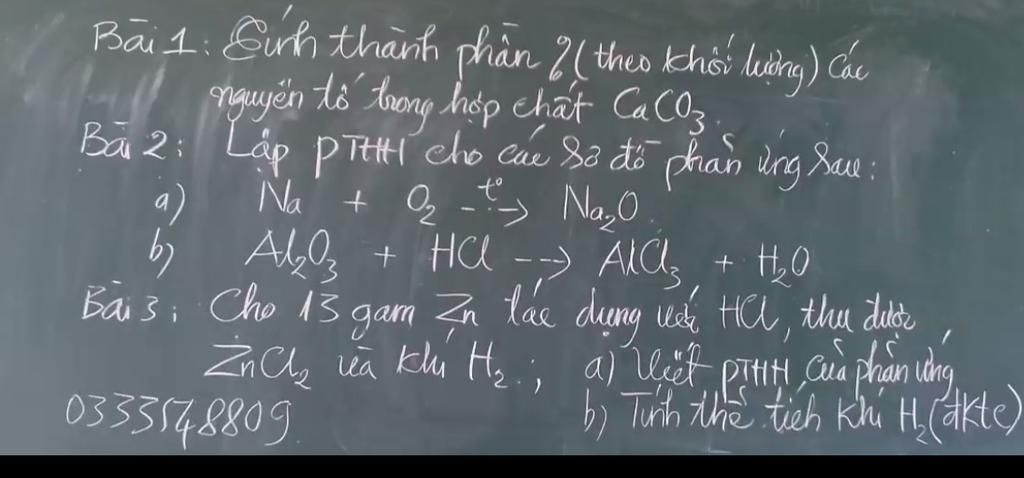 Bài 1: Tính thành phần % (theo khối lượng) các
nguyên tố trong hợp chất CaCO₃.
Bài 2: Lập PTHH cho các sơ đồ phản ứng sau:
a) Na + O₂ --t°--> Na₂O.
b) Al₂O₃ + HCl --> AlCl₃ + H₂O
Bài 3: Cho 13 gam Zn tác dụng với HCl, thu được
ZnCl₂ và khí H₂.; a) Viết PTHH của phản ứng
0333548809 b) Tính thể tích khí H₂ (đktc)